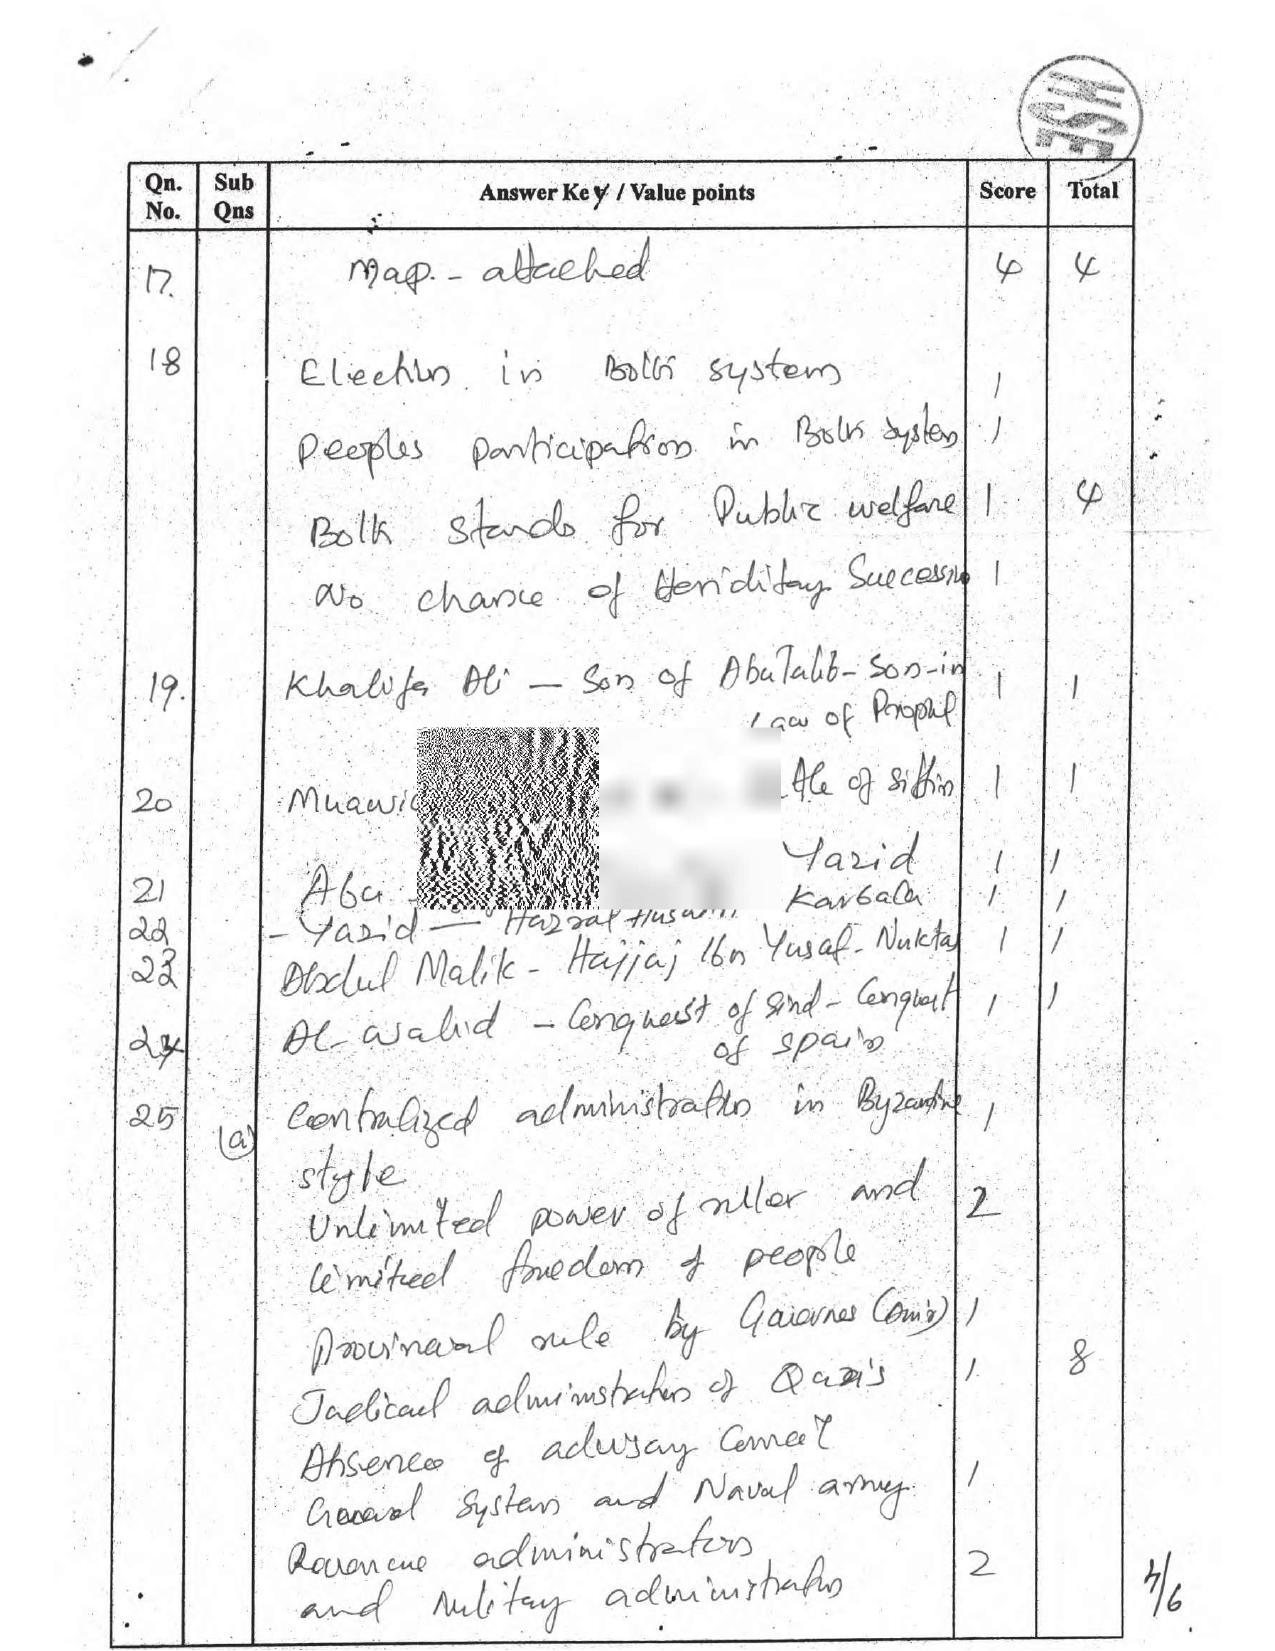 HSE
Qn. No. Sub Qns Answer Key / Value points Score Total
17. Map. - attached 4 4
18 Election in Bolk system 1
Peoples participation in Bolk system 1
Bolk stands for Public welfare 1 4
No chance of Heriditay Succession 1
19. Khalifa Ali — Son of AbuTalib - Son-in 1 1
law of Prophet
20 of Siffin 1 1
21 Abu Yazid 1 1
22 - Yazid — Hazrat Husain Karbala 1 1
23 Abdul Malik - Hajjaj Ibn Yusaf - Nuktas 1 1
24 Al-walid - Conquest of Sind - Conquest 1 1
of Spain
25 (a) Centralized administration in Byzantine 1
style
Unlimited power of ruller and 2
limited freedom of people
Provincial rule by (Amir) 1
administration of Qazi's 1 8
Absence of
System and Naval army 1
administration
and administration 2
4/6